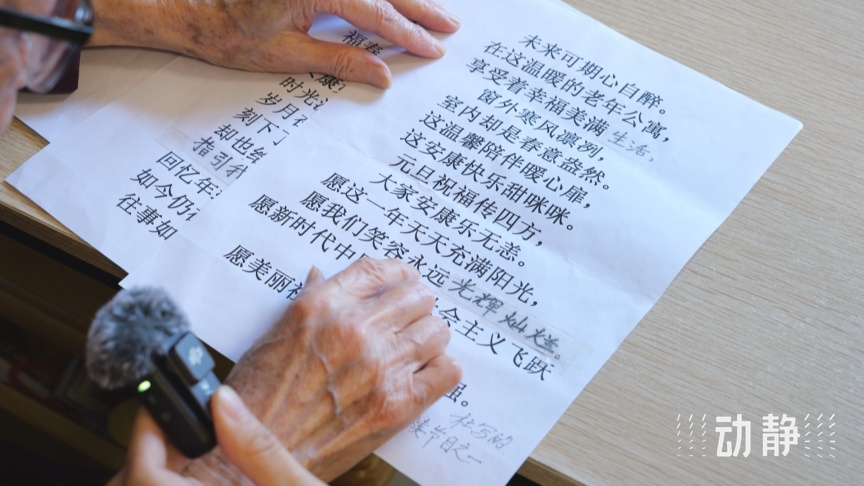 未来可期心自醉。
在这温暖的老年公寓，
享受着幸福美满生活，
窗外寒风凛冽，
室内却是春意盎然。
这温馨陪伴暖心扉，
这安康快乐甜咪咪。
元旦祝福传四方，
大家安康乐无恙。
愿这一年天天充满阳光，
愿我们笑容永远光輝灿烂。
愿新时代中
会主义飞跃
愿美丽
强。
福寿
康
时光
岁月
刻下
却也
指引我
回忆年
如今仍
往事如
写的
节目之一
动静